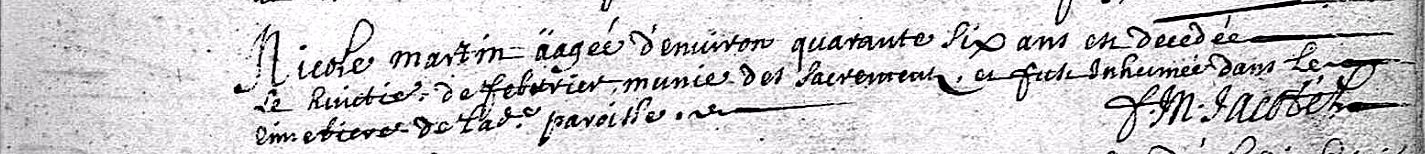 Nicole martin äagéé d'enuiron quarante six ans est decedée
le huictie. de febvrier, munie des sacrements, et fut Inhumée dans le
cimetiere de lad.e paroisse.
f. M. Jacobé